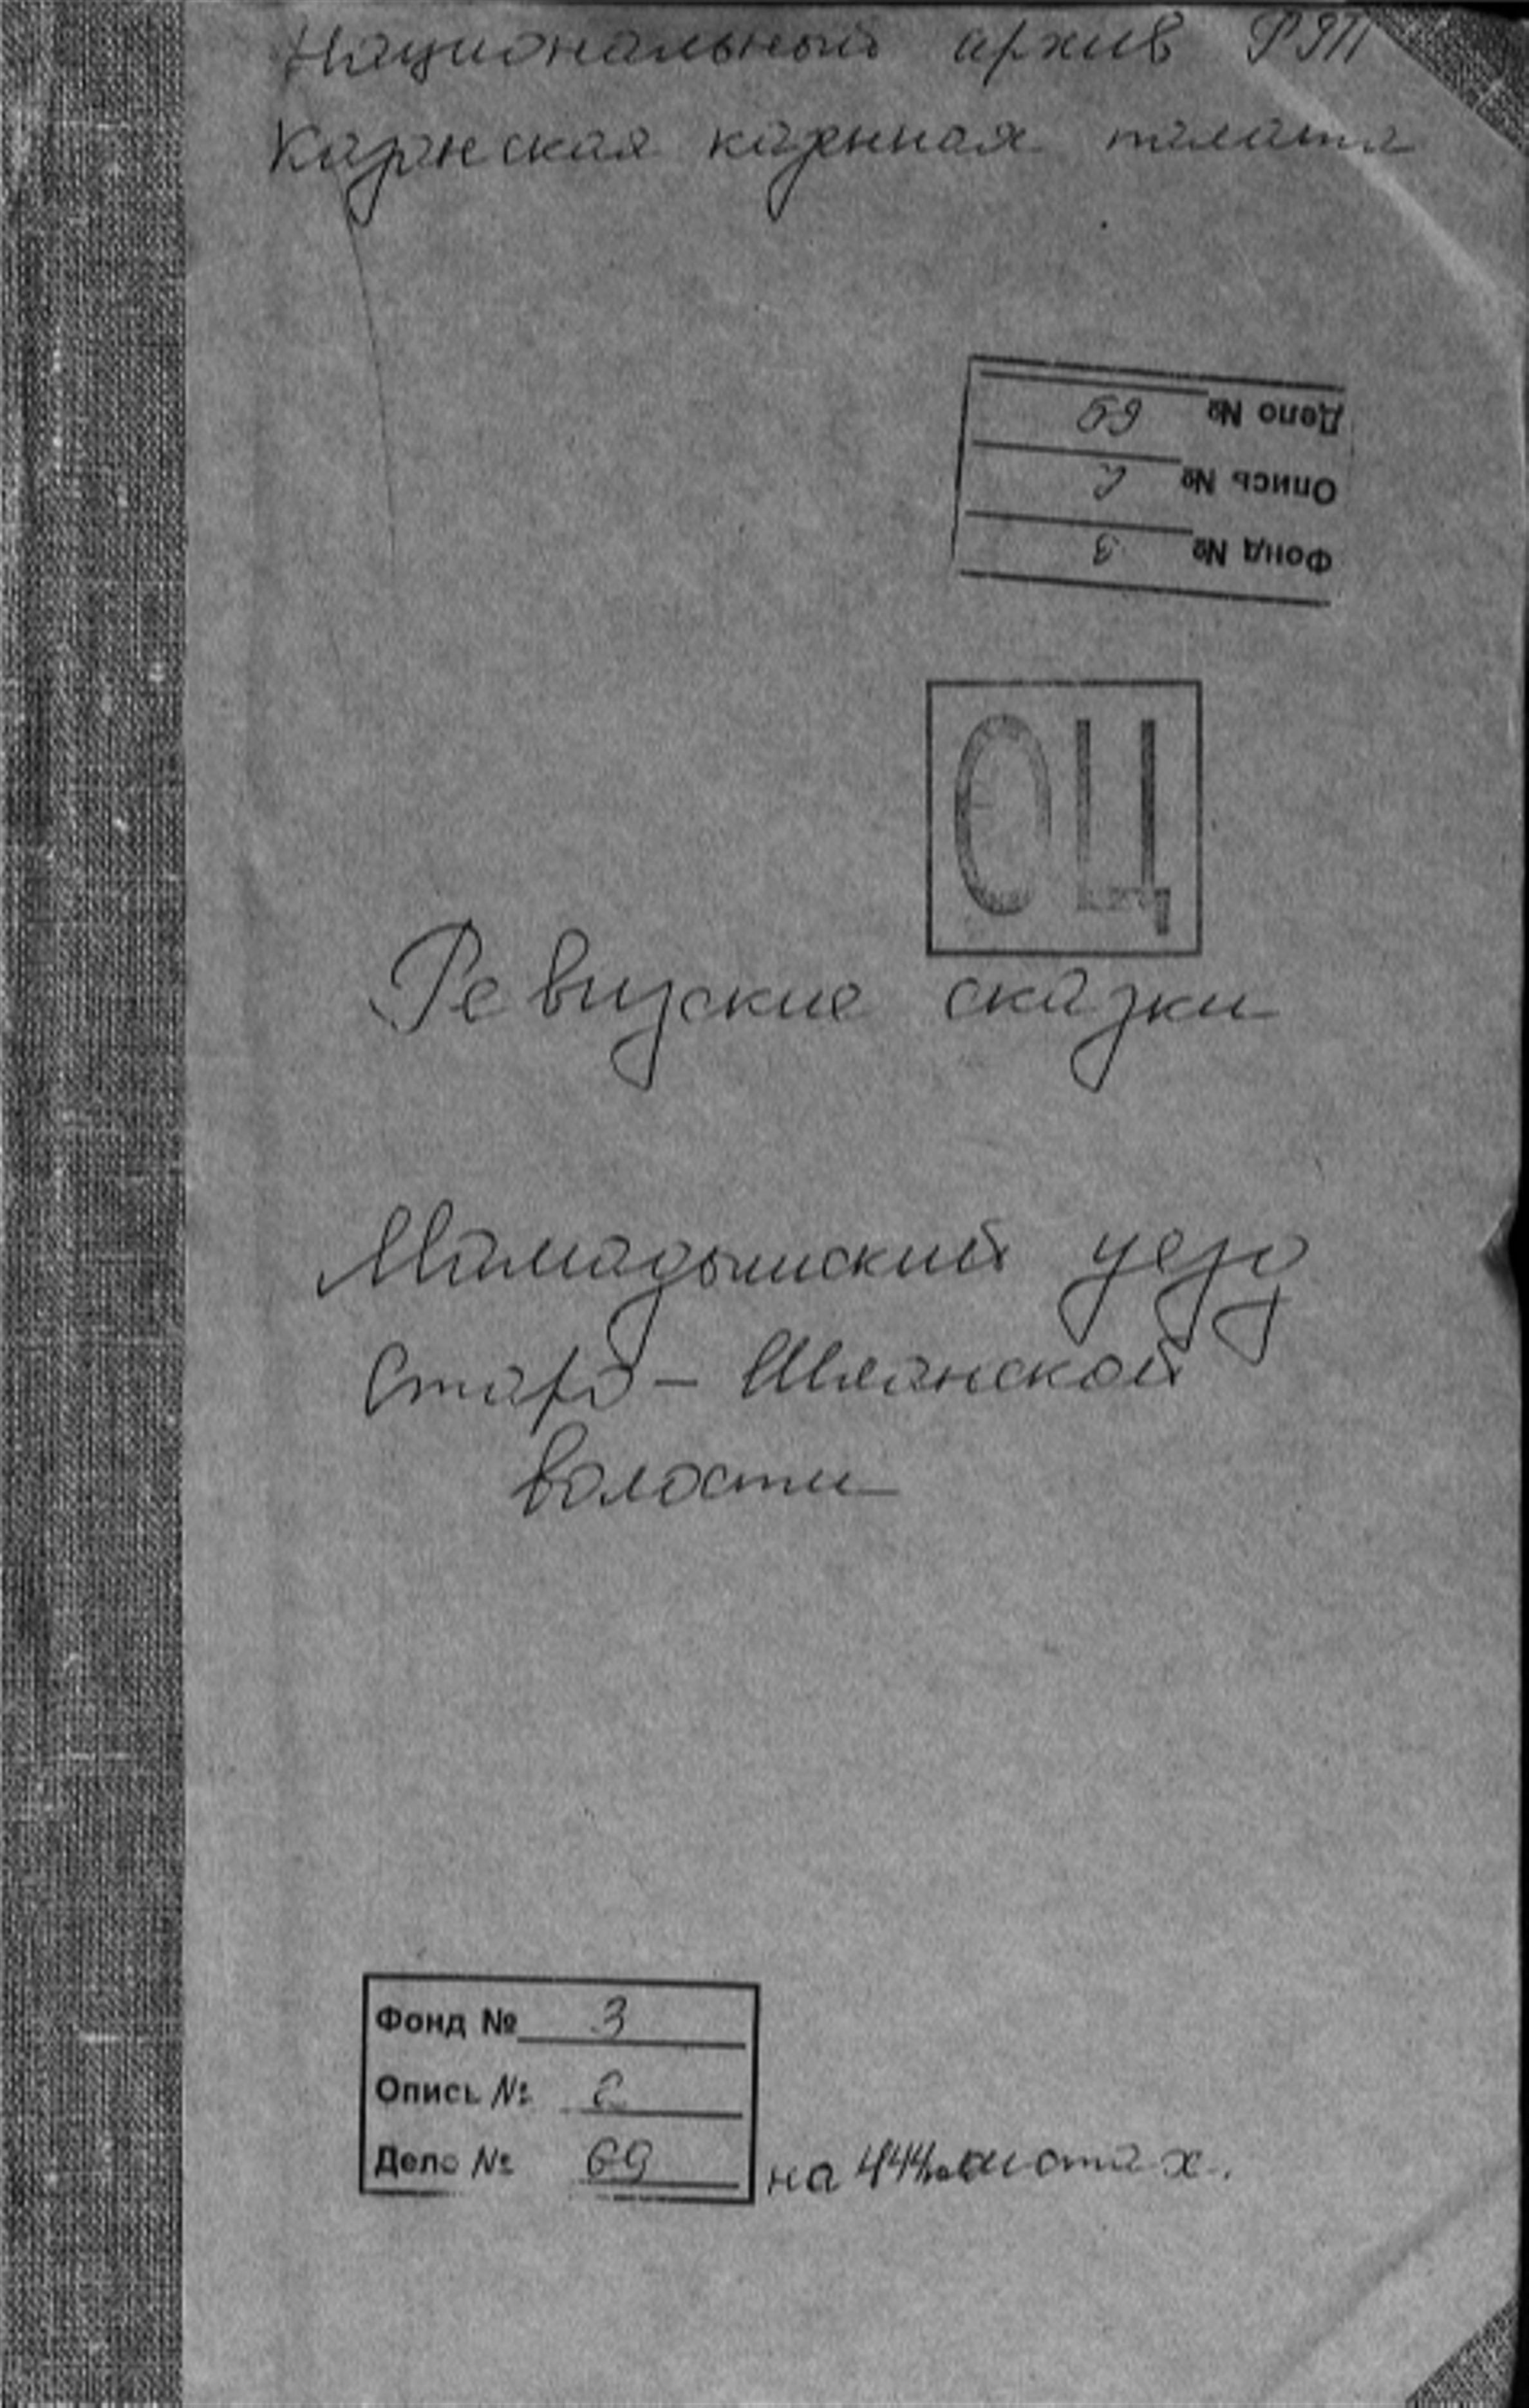 Национальный архив РТ
Казанская казенная палата
Дело № 69
Опись № 2
Фонд № 3
ОЦ
Ревизские сказки
Мамадышский уезд
Старо - Шиланской
волости
Фонд № 3
Опись № 2
Дело № 69
на листах.